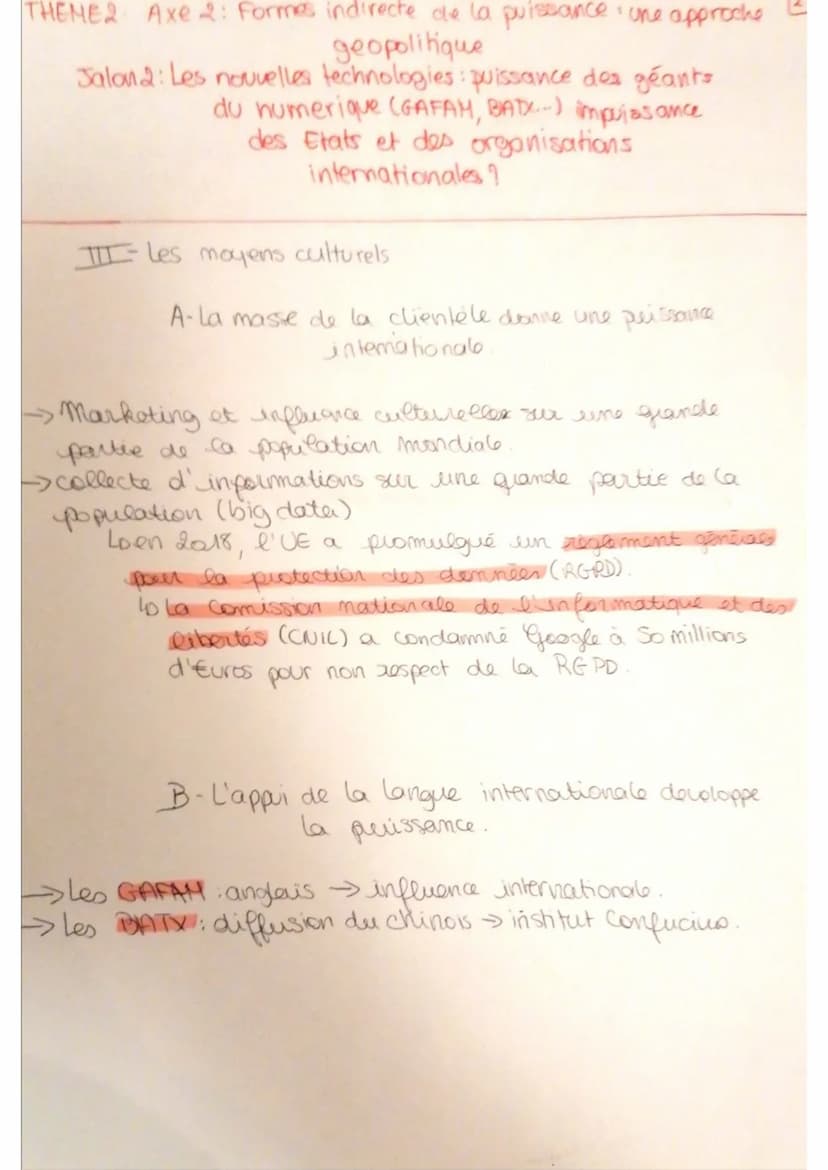 THEME 2 Axe 2: Formes indirecte de la puissance : une approche
geopolitique
Jalon 2: Les nouvelles technologies : puissance des géants
du numerique (GAFAM, BATX...) impuissance
des Etats et des organisations
internationales ?
III- Les moyens culturels
A- La masse de la clientèle donne une puissance
internationale.
→ Marketing et influence culturelles sur une grande
partie de la population mondiale.
→ collecte d'informations sur une grande partie de la
population (big data)
↳ en 2018, l'UE a promulgué un règlement général
pour la protection des données (RGPD).
↳ La Comission nationale de l'informatique et des
libertés (CNIL) a condamné Google à 50 millions
d'€uros pour non respect de la RGPD.
B- L'appui de la langue internationale developpe
la puissance.
→ Les GAFAM : anglais → influence internationale.
→ Les BATX : diffusion du chinois → institut Confucius.